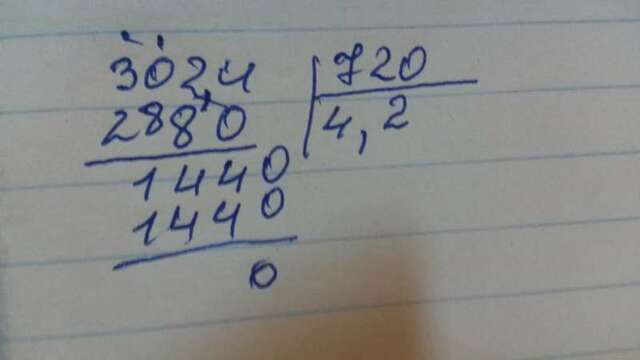 3024 720
2880 4,2
1440
1440
0